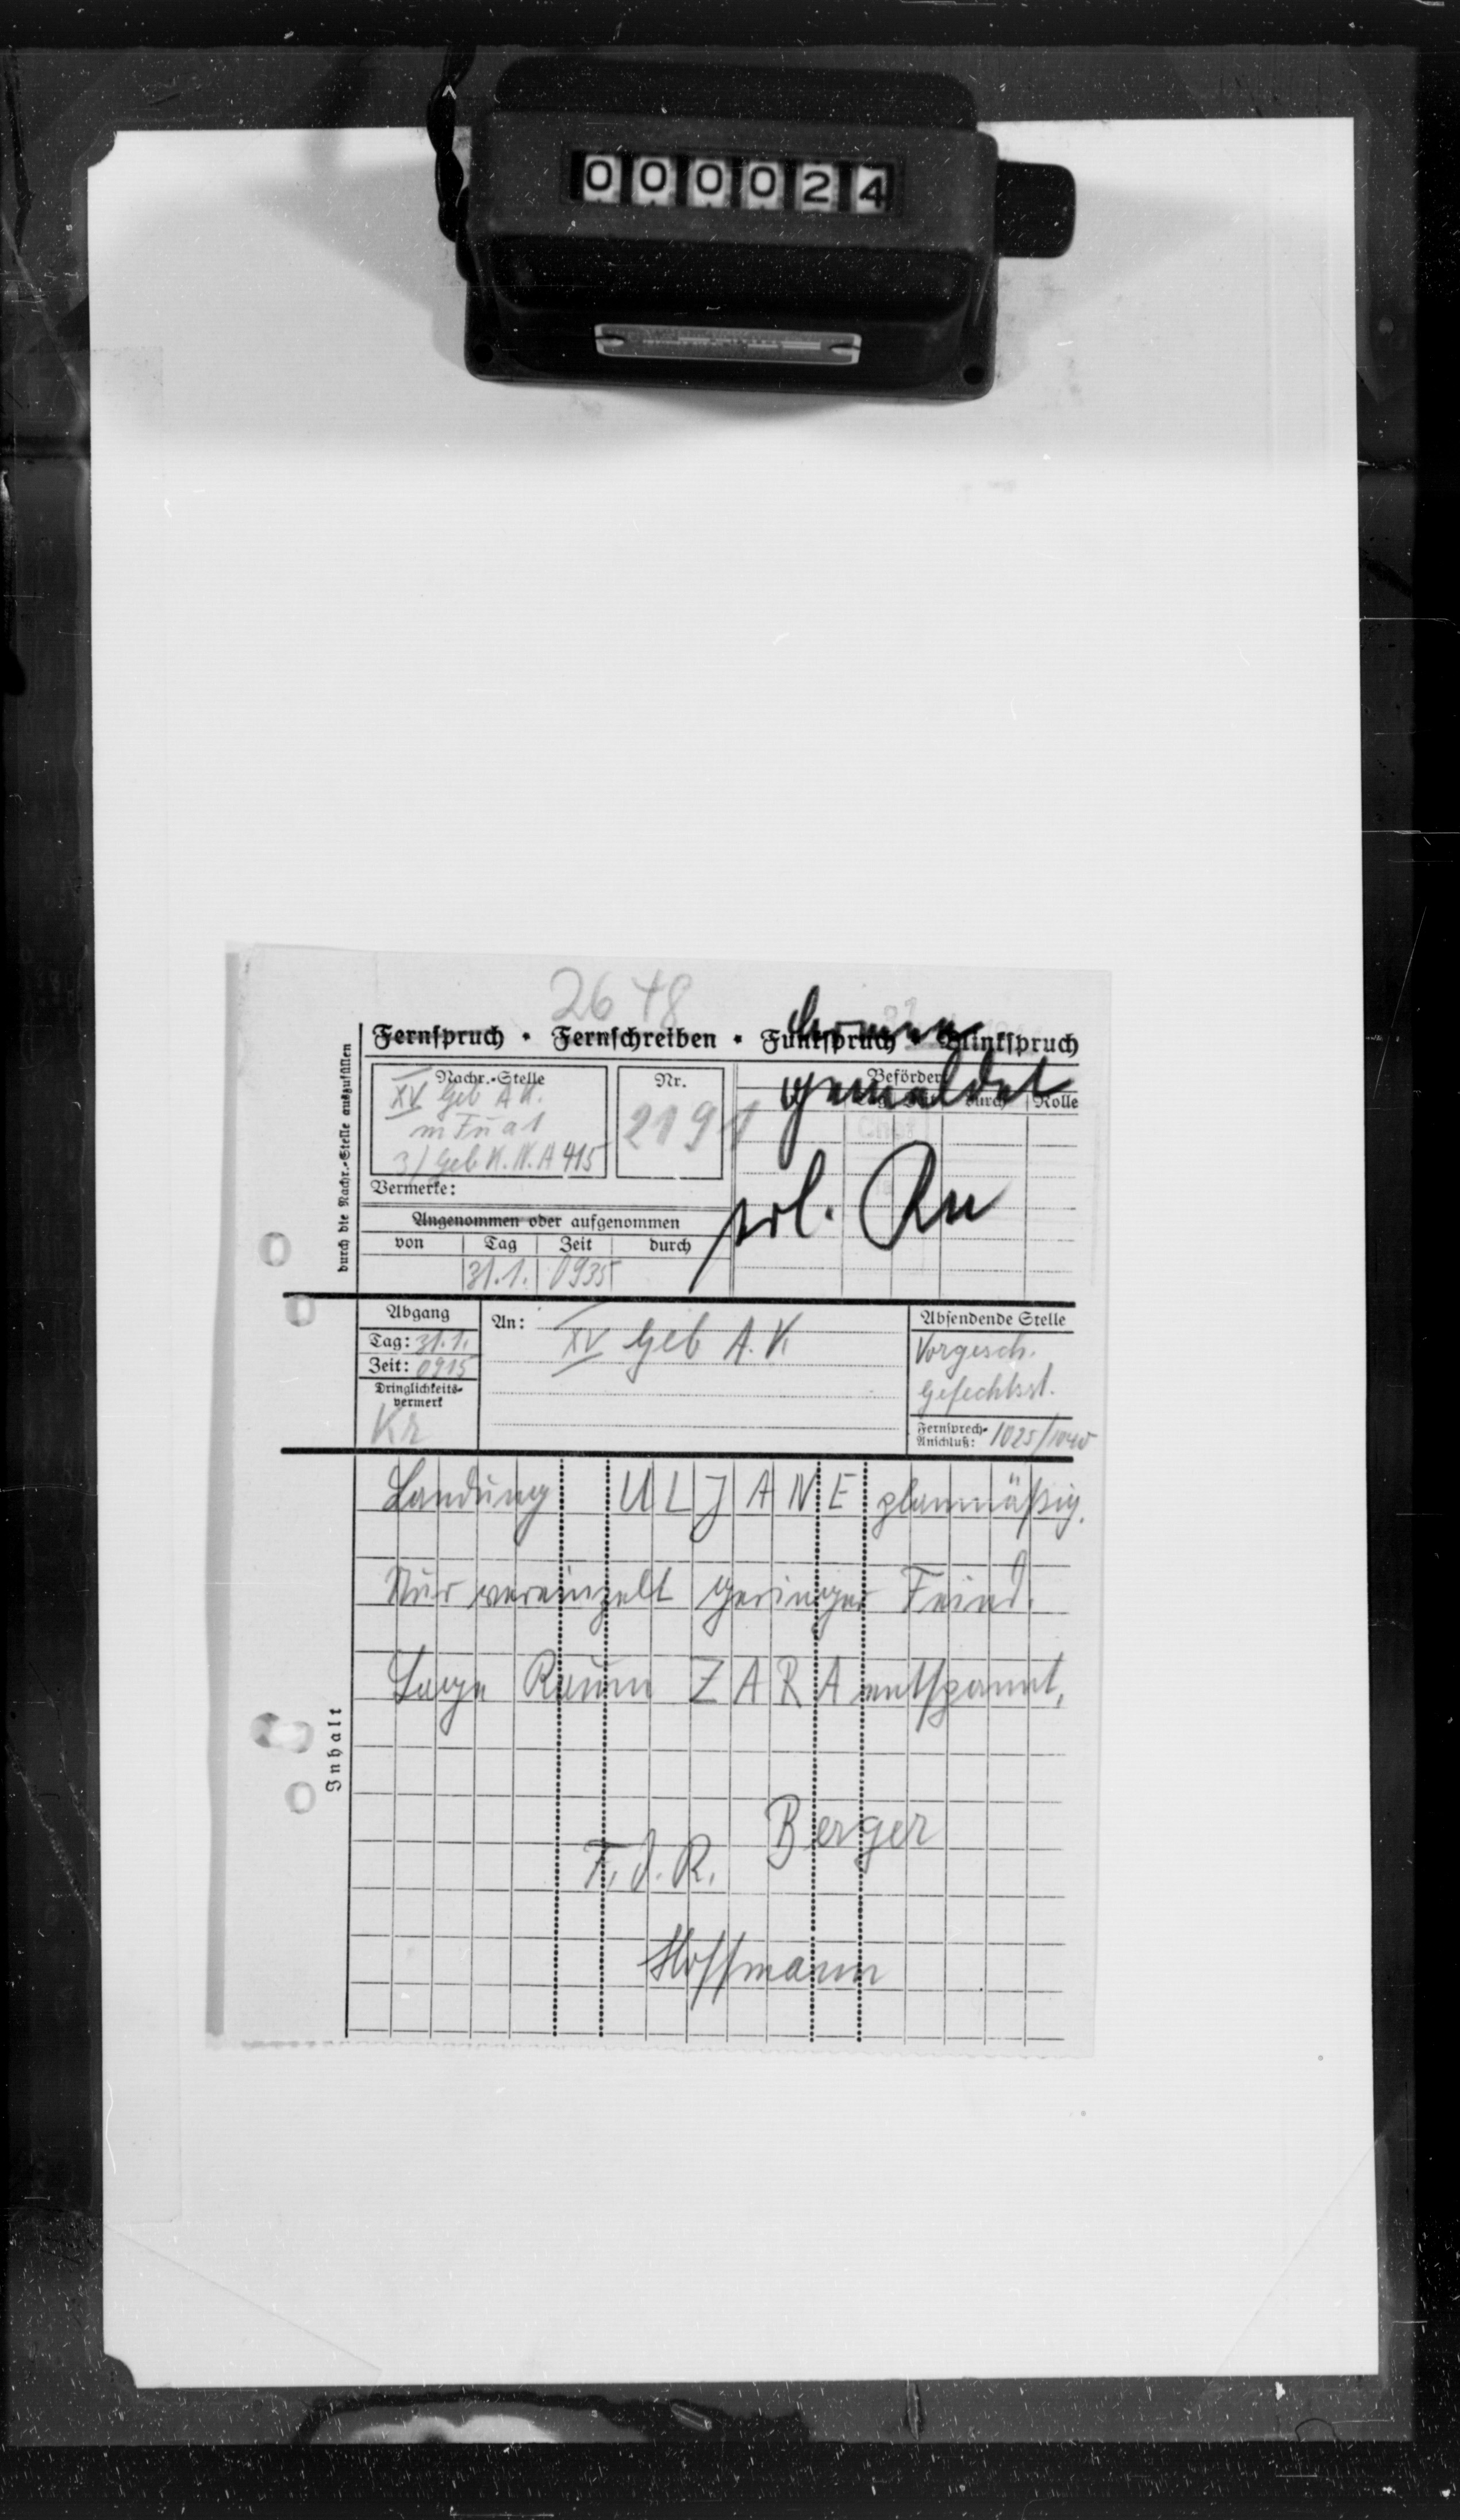 000024
2678
Fernspruch • Fernschreiben • Funkspruch • Blinkspruch
durch die Nachr.-Stelle auszufüllen
Nachr.-Stelle
XV Geb A.K.
m Fu a 1
3/ Geb K.N.A 415
Nr.
2191
Beförder
durch Rolle
gemeldet
erl. Ru
Vermerke:
Angenommen oder aufgenommen
von Tag Zeit durch
31.1. 0935
Abgang
Tag: 31.1.
Zeit: 0915
Dringlichkeits-
vermerk
Kr
An: XV Geb A.K
Absendende Stelle
Vorgesch.
Gefechtsst.
Fernsprech-
Anschluß: 1025/1040
Inhalt
Landung ULJANE planmäßig.
Nur vereinzelt geringer Feind.
Lage Raum ZARA entspannt,
Berger
F.d.R.
Hoffmann